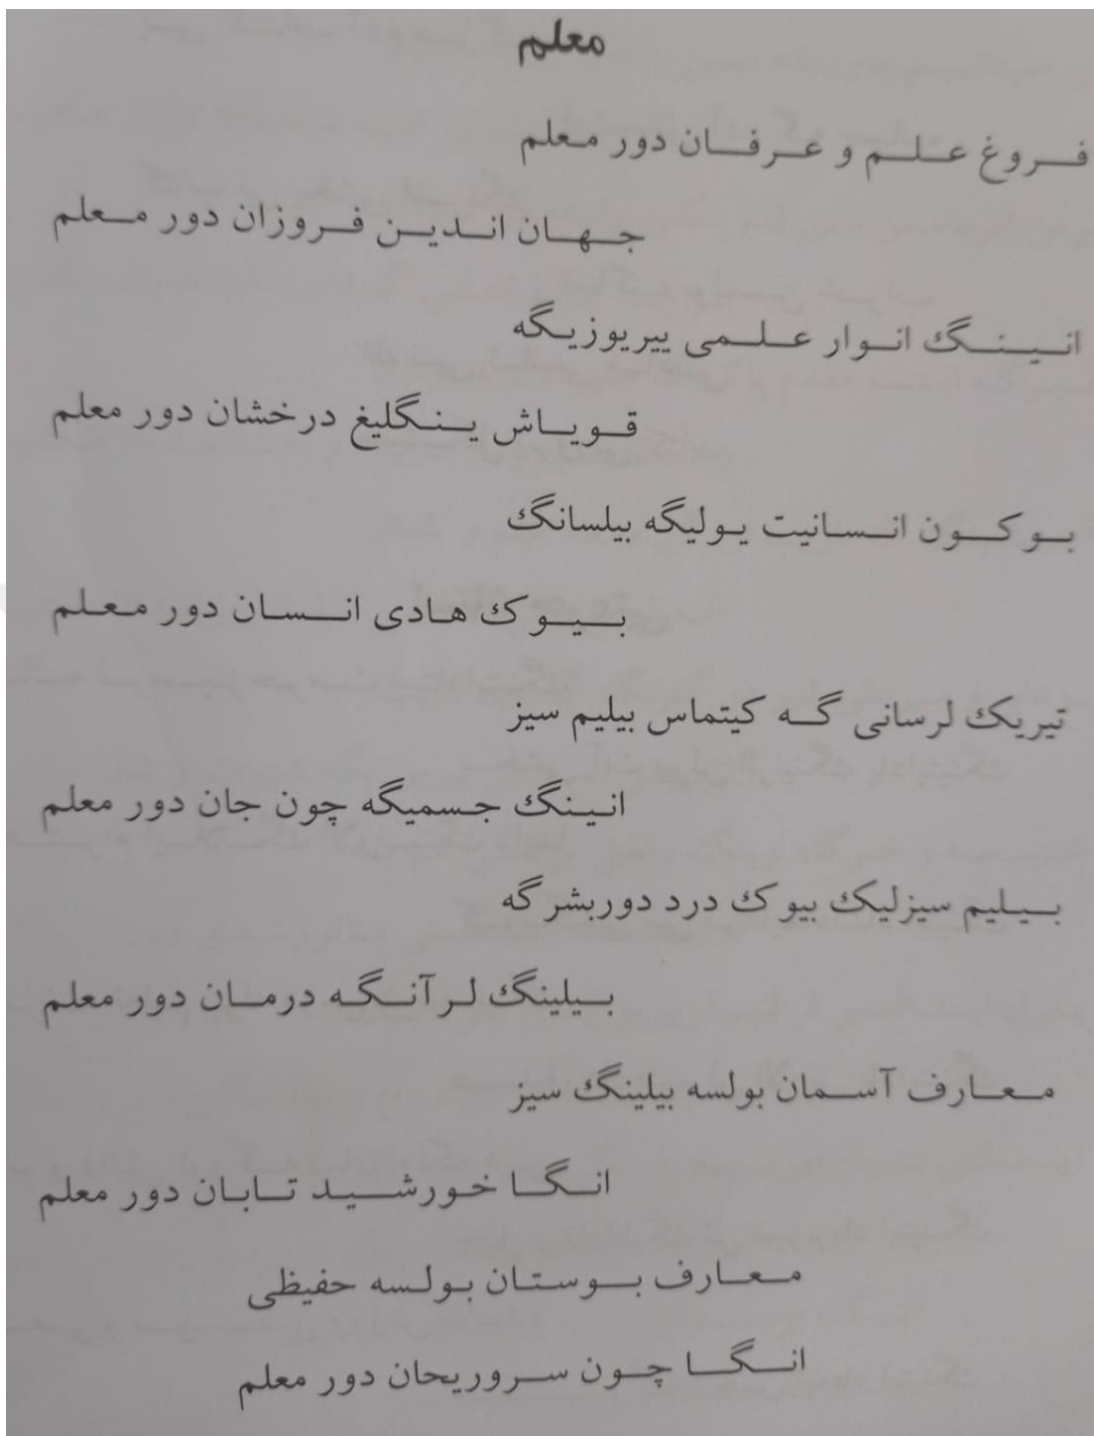 معلم
فروغ علم و عرفان دور معلم
جهان اندین فروزان دور معلم
انینگ انوار علمی ییریوزیگه
قویاش ینگلیغ درخشان دور معلم
بو کون انسانیت یولیگه بیلسانگ
بیوک هادی انسان دور معلم
تیریک لرسانی گه کیتماس بیلیم سیز
انینگ جسمیگه چون جان دور معلم
بیلیم سیزلیک بیوک درد دوربشرگه
بیلینگ لرآنگه درمان دور معلم
معارف آسمان بولسه بیلینگ سیز
انگا خورشید تابان دور معلم
معارف بوستان بولسه حفیظی
انگا چون سروریحان دور معلم